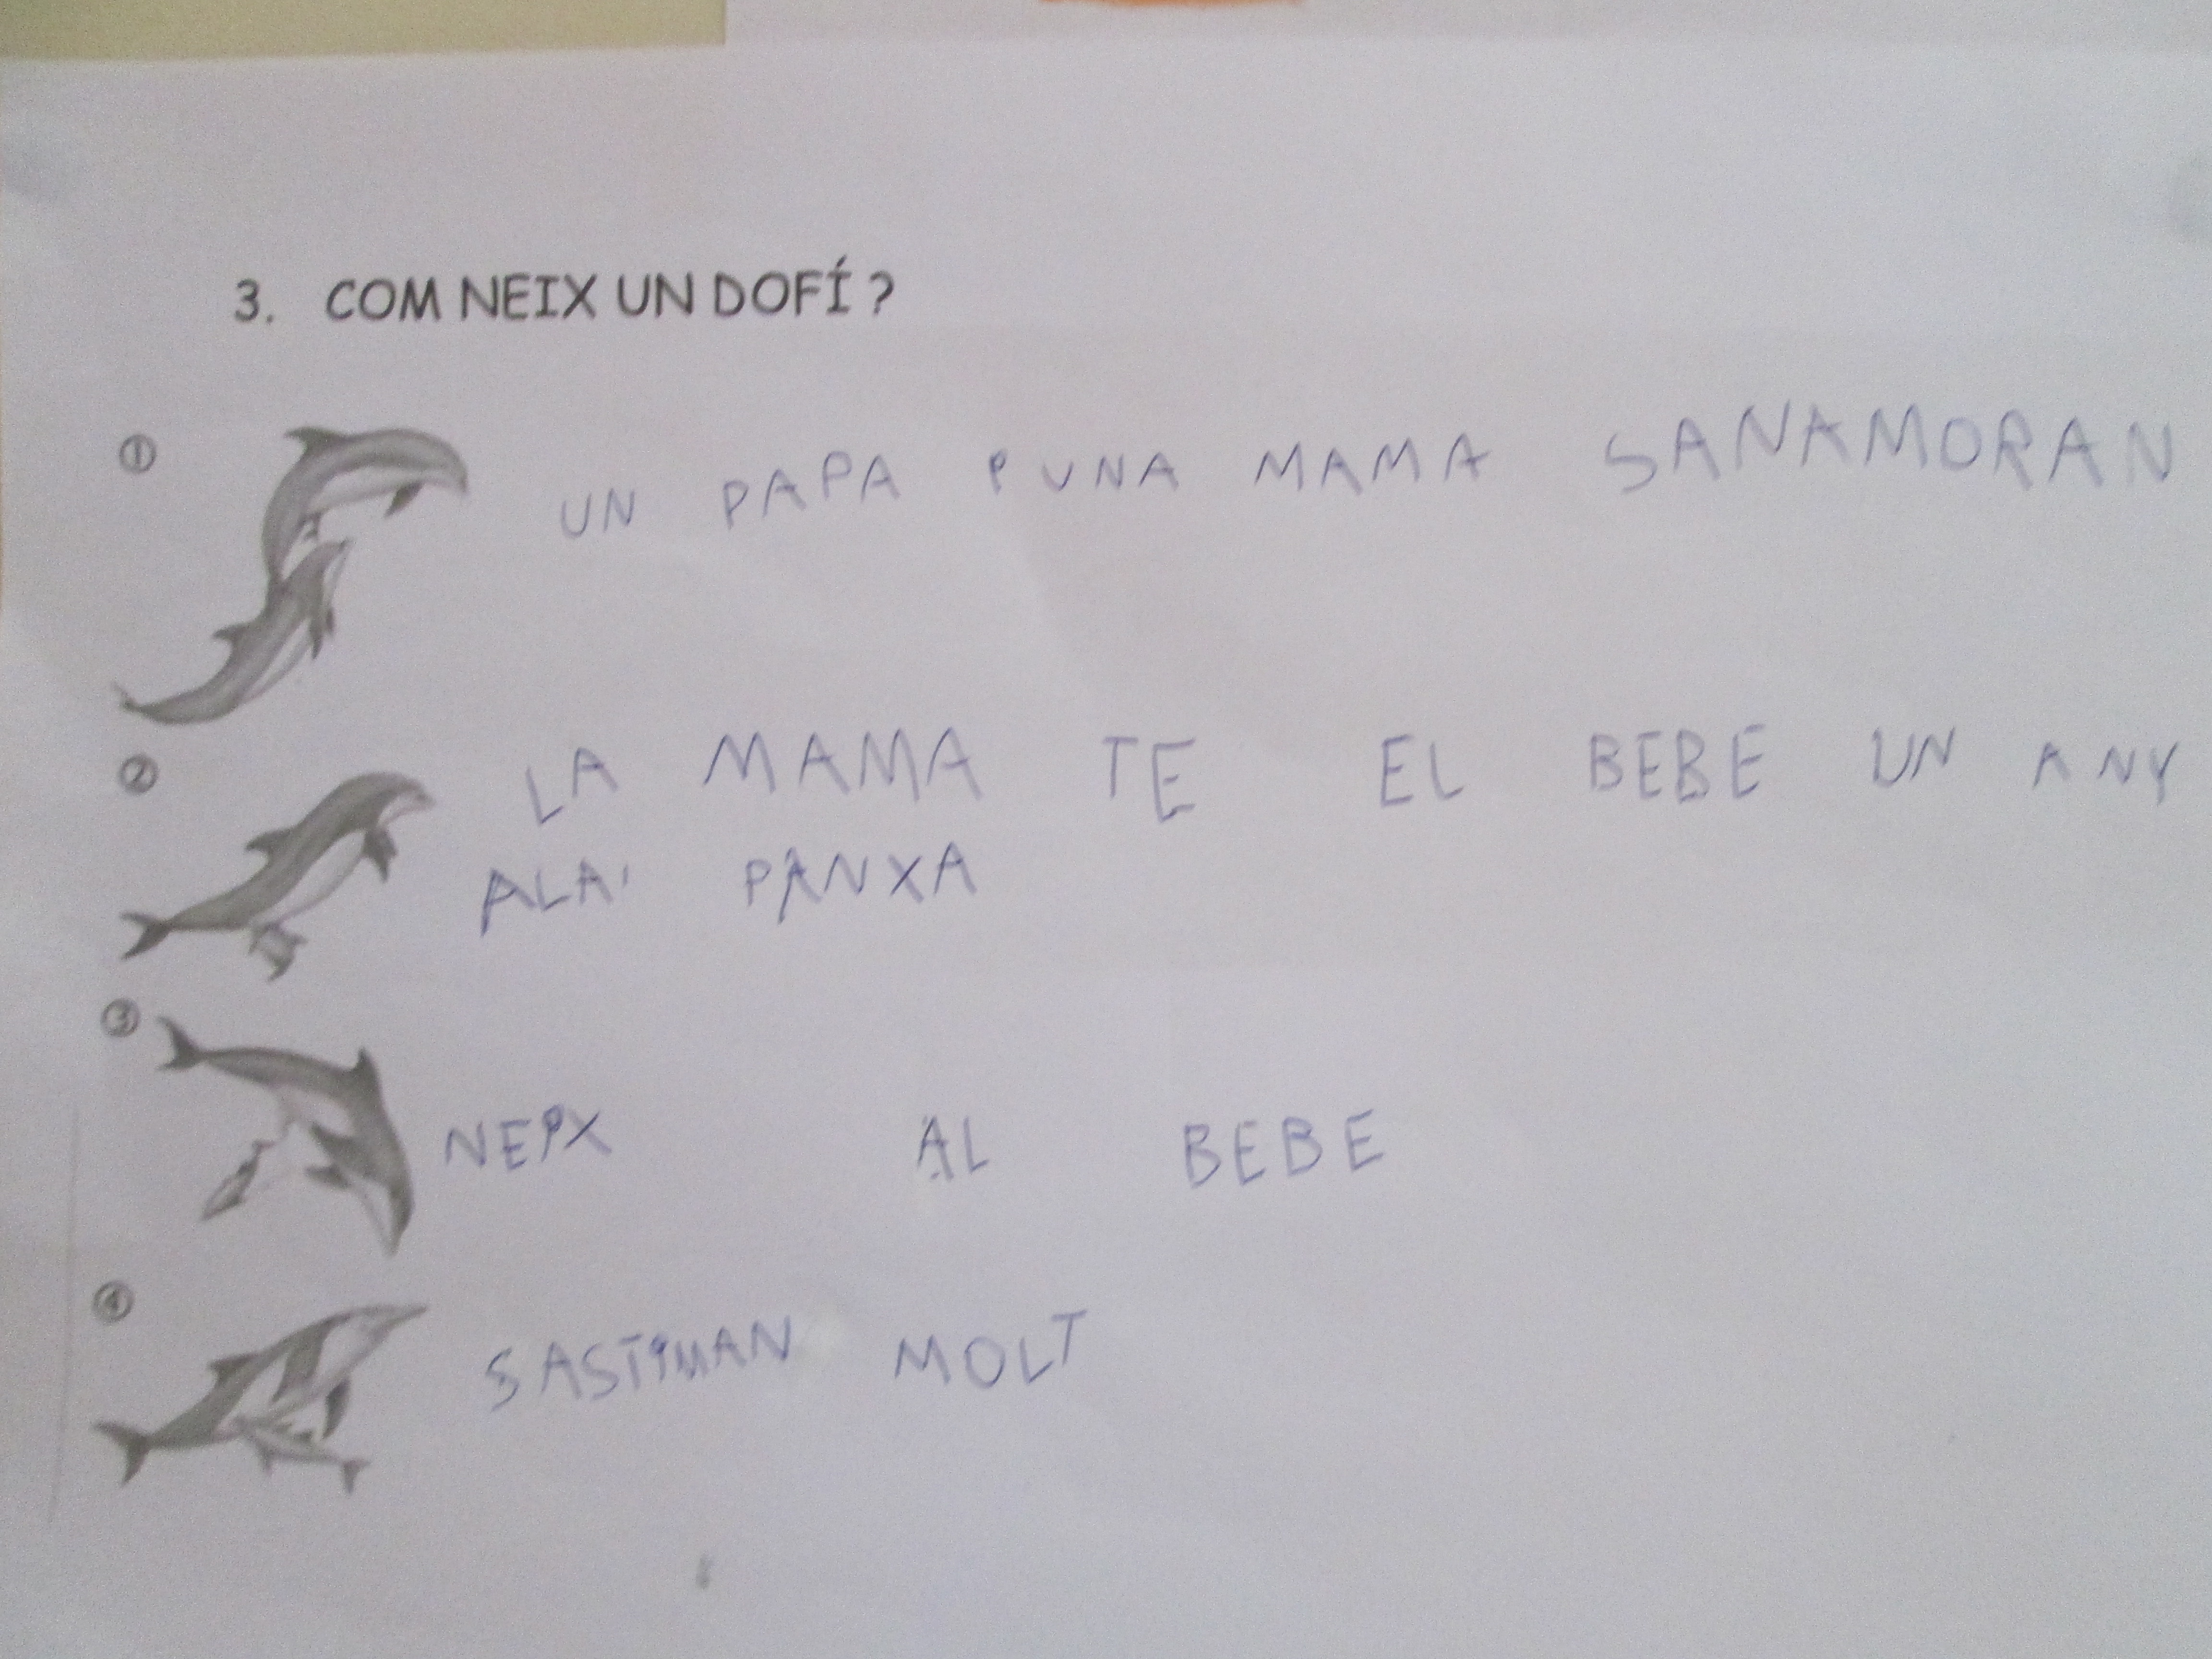 3. COM NEIX UN DOFÍ?
① UN PAPA I UNA MAMA SANAMORAN
② LA MAMA TE EL BEBE UN ANY
ALA PANXA
③ NEIX AL BEBE
④ SASTIMAN MOLT